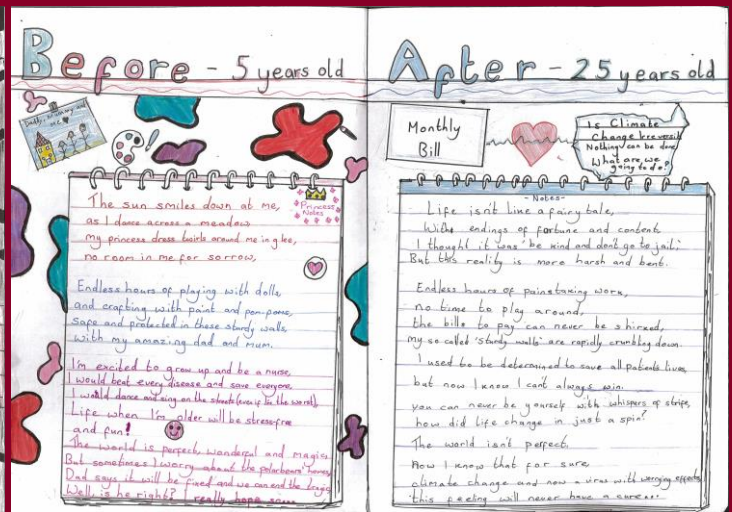 Before - 5 years old
Daddy, Mummy and me
Princess Notes
The sun smiles down at me,
as I dance across a meadow
my princess dress twirls around me in glee,
no room in me for sorrow,
Endless hours of playing with dolls,
and crafting with paint and pom-poms,
safe and protected in these sturdy walls
with my amazing dad and mum.
I'm excited to grow up and be a nurse
I would beat every disease and save everyone
I would dance and sing on the streets (even if I'm the worst),
Life when I'm older will be stress-free
and fun!
The world is perfect, wonderful and magic,
But sometimes I worry about the polar bears' homes,
Dad says it will be fixed and we can end the
Well, is he right? I really hope so...
After - 25 years old
Monthly
Bill
Is Climate
Change Irreversib
Nothing can be done,
What are we
going to do?
-Notes-
Life isn't like a fairy tale,
With endings of fortune and content,
I thought it was 'be kind and don't go to jail,'
But this reality is more harsh and bent.
Endless hours of painstaking work,
no time to play around,
the bills to pay can never be shirked,
my so called 'sturdy walls' are rapidly crumbling down.
I used to be determined to save all patients lives,
but now I know I cant always win.
you can never be yourself with whispers of strife,
how did life change in just a spin?
The world isn't perfect,
Now I know that for sure
climate change and now a virus with worrying effects,
this feeling will never have a cure...